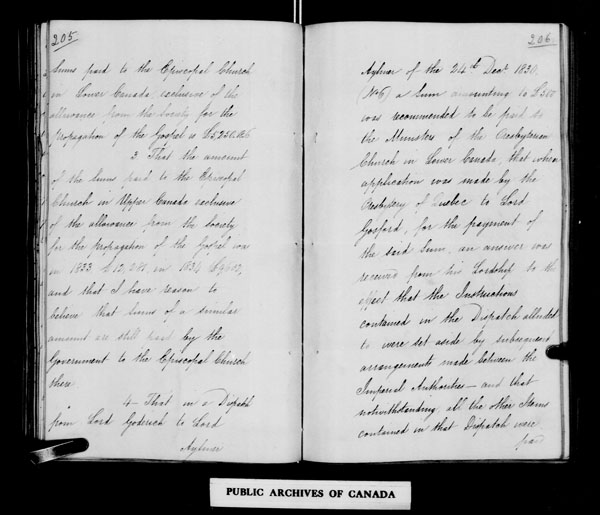 205
Sums paid to the Episcopal Church
in Lower Canada exclusive of the
allowance from the Society for the
Propagation of the Gospel is
3 That the amount
of the sums paid to the Episcopal
Church in Upper Canada exclusive
of the allowance from the Society
for the propagation of the Gospel was
in 1833 in 1834
and that I have reason to
believe that sums of a similar
amount are still paid by the
Government to the Episcopal Church
there
4 That in a Dispatch
from Lord Goderich to Lord
Aylmer
206
Aylmer of the 24th Decr 1830.
a Sum amounting to £500
was recommended to be paid to
the Ministers of the Presbyterian
Church in Lower Canada, that when
application was made by the
Presbytery of Quebec to Lord
Gosford, for the payment of
the said Sum, an answer was
received from his Lordship to the
effect that the Instructions
contained in the Dispatch alluded
to were set aside by subsequent
arrangements made between the
Imperial Authorities – and that
notwithstanding all the other Items
contained in that Dispatch were
paid
PUBLIC ARCHIVES OF CANADA